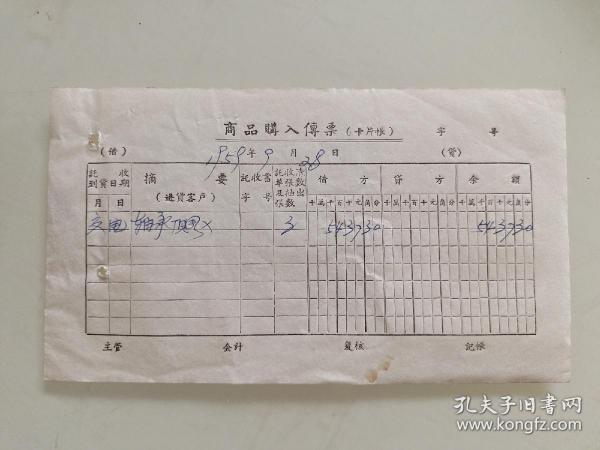 商品購入傳票(卡片帳) 字 號
(借) 1959年9月28日 (貸)
託收到貨日期 摘要(進貨客戶) 託收當字號 託收清單張數及估出數 借方 貸方 余額
月 日 千萬千百十元角分 千萬千百十元角分 千萬千百十元角分
3 543730 543730
主管 会計 复核 記帳
孔夫子旧书网
www.kongfz.com